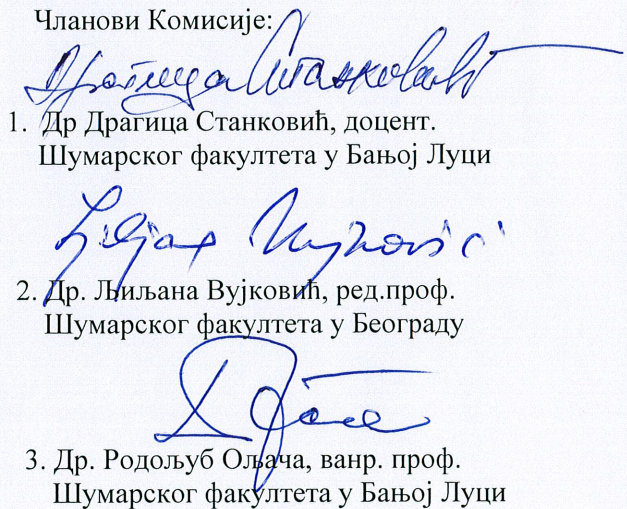 Чланови Комисије:
Драгица Станковић
1. Др Драгица Станковић, доцент.
Шумарског факултета у Бањој Луци
Ljiljana Vujković
2. Др. Љиљана Вујковић, ред.проф.
Шумарског факултета у Београду
3. Др. Родољуб Ољача, ванр. проф.
Шумарског факултета у Бањој Луци